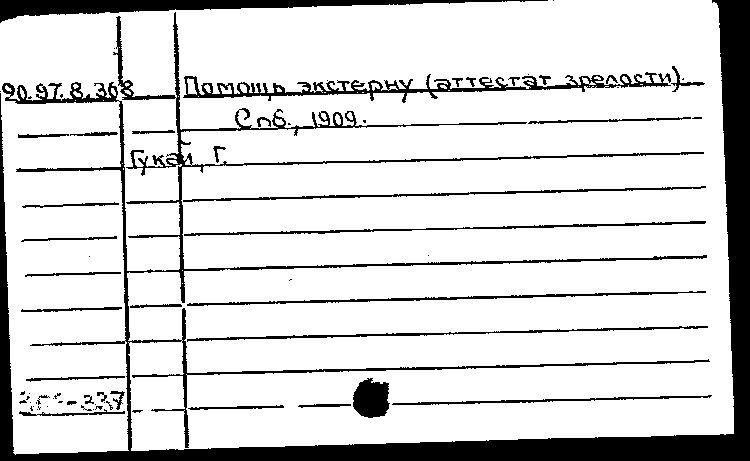 90.97.8.368 Помощь экстерну (аттестат зрелости).
Спб., 1909.
Гукай, Г.